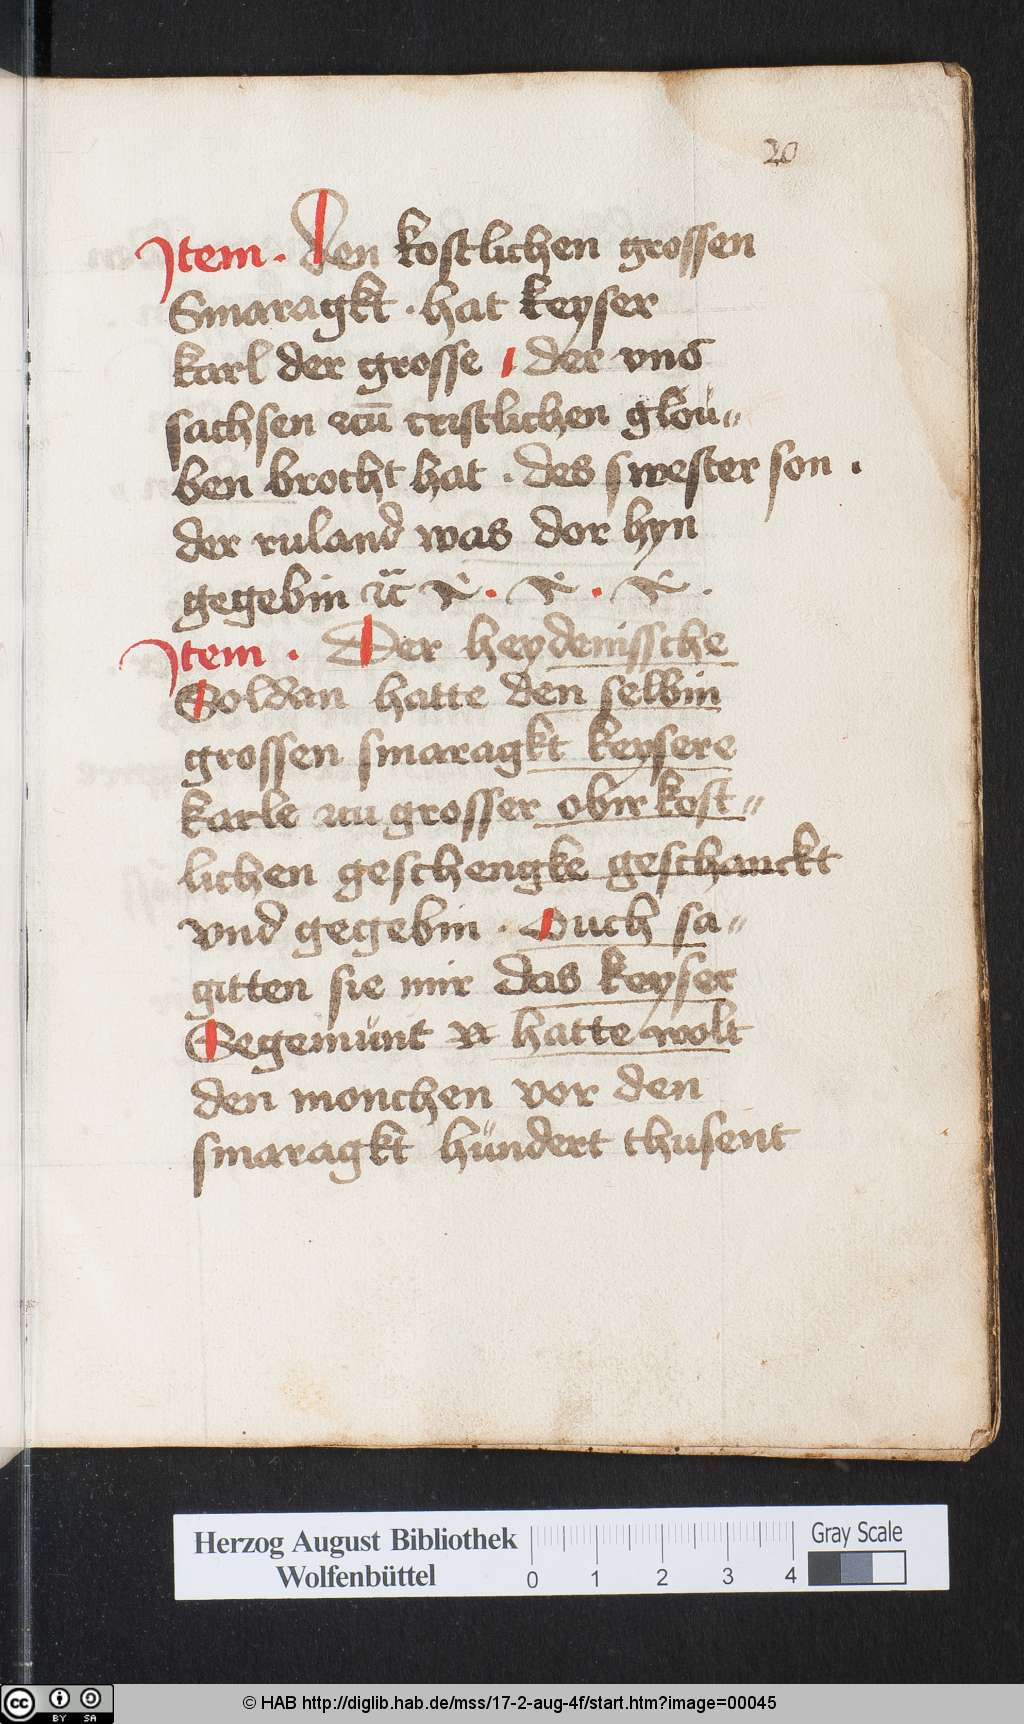 20
Item · den kostlichen grossen
Smaragkt · hat keyser
karl der grosse · der vns
sachsen zcu cristlichen glou„
ben brocht hat · des swester son ·
der ruland was dor hyn
gegebin
Item · Der heydenissche
Soldan hatte den selbin
grossen smaragkt keysere
karle zcu grosser obir kost„
lichen geschengke geschanckt
vnd gegebin · Ouch sa„
gitten sie mir das keyser
Segemünt hatte wolt
den monchen vor den
smaragkt hündert thusent
Herzog August Bibliothek
Wolfenbüttel
0 1 2 3 4
Gray Scale
cc BY SA
© HAB http://diglib.hab.de/mss/17-2-aug-4f/start.htm?image=00045